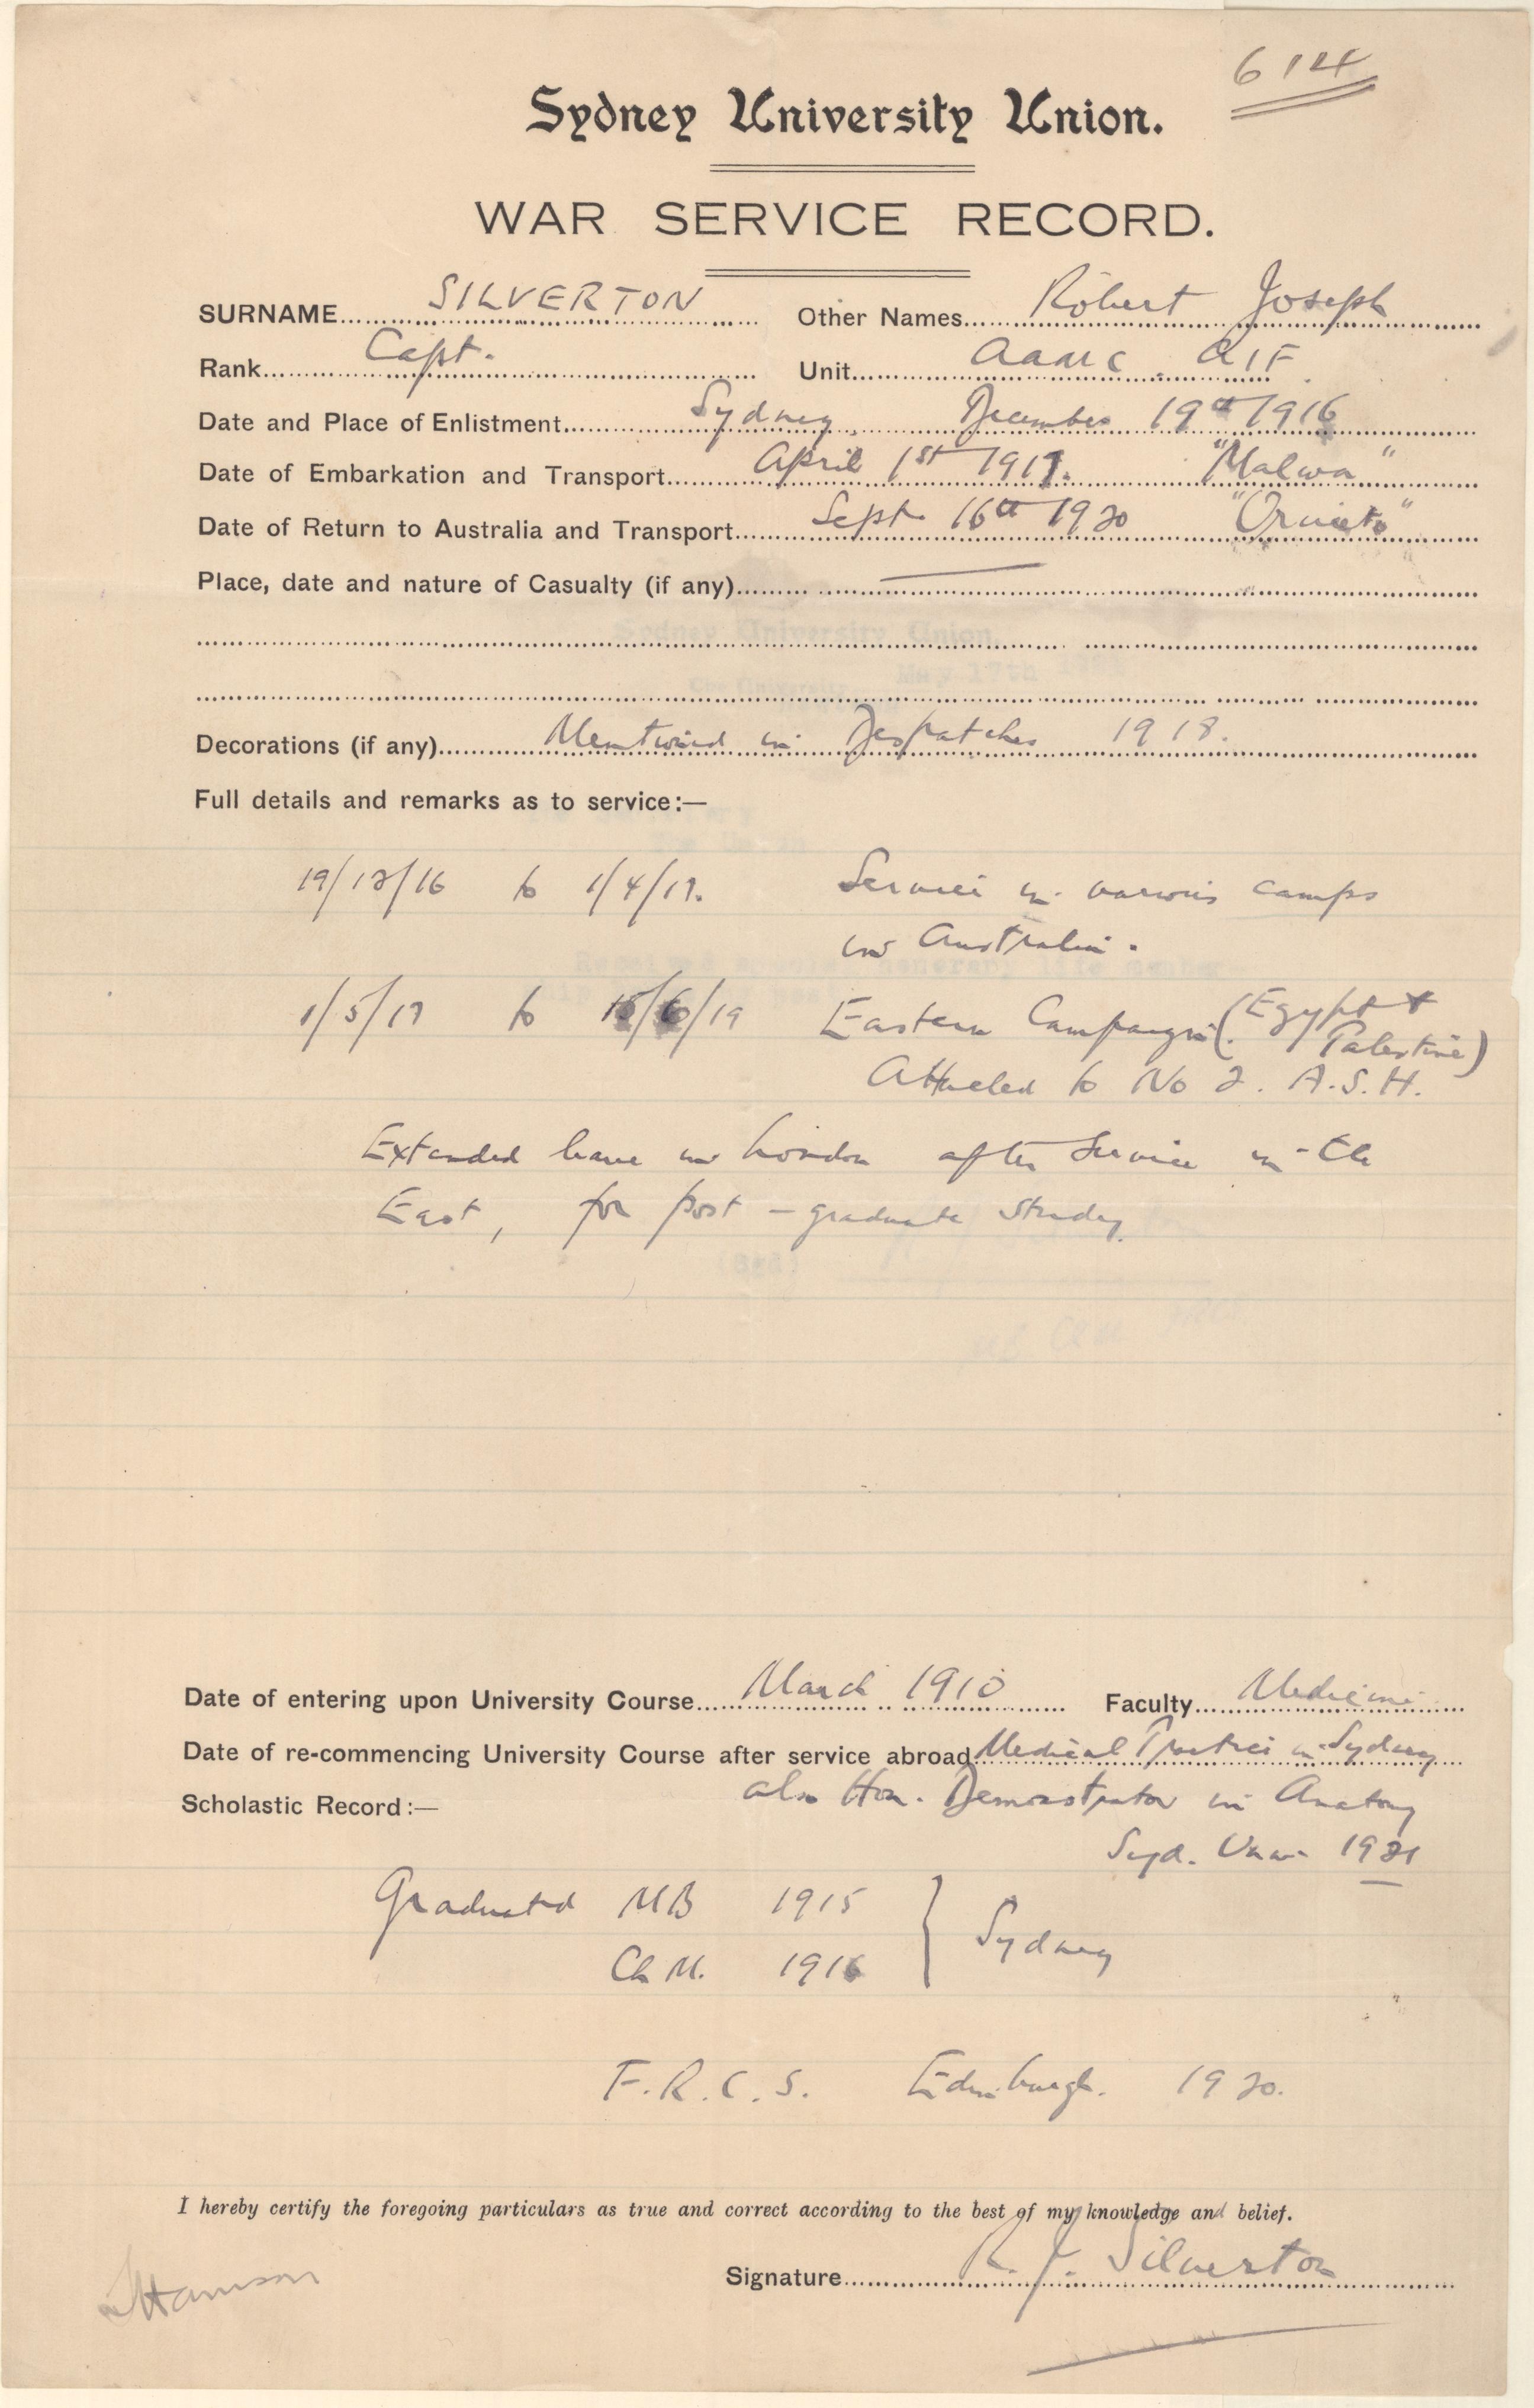 614
Sydney University Union.
WAR SERVICE RECORD.
SURNAME SILVERTON Other Names Robert Joseph
Rank Capt. Unit AAMC. AIF.
Date and Place of Enlistment Sydney. December 19th 1916
Date of Embarkation and Transport April 1st 1917. "Malwa"
Date of Return to Australia and Transport Sept. 16th 1920 "Orvieto"
Place, date and nature of Casualty (if any) —
Decorations (if any) Mentioned in Despatches 1918.
Full details and remarks as to service:—
19/12/16 to 1/4/17. Service in various camps
in Australia.
1/5/17 to /6/19 Eastern Campaign (Egypt &
Palestine)
Attached to No 2. A.S.H.
Extended leave in London after Service in the
East, for post-graduate study.
Date of entering upon University Course March 1910 Faculty Medicine
Date of re-commencing University Course after service abroad Medical Practice in Sydney
Scholastic Record:— also Hon. Demonstrator in Anatomy
Syd. Univ. 1921
Graduated MB 1915 } Sydney
Ch M. 1916
F.R.C.S. Edinburgh. 1920.
I hereby certify the foregoing particulars as true and correct according to the best of my knowledge and belief.
Signature R. J. Silverton